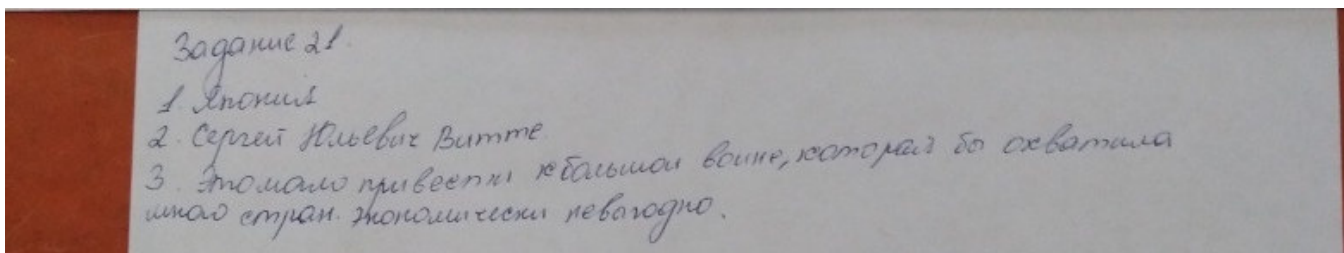 Задание 21.
1. Япония
2. Сергей Юльевич Витте.
3. Это могло привести к большой войне, которая бы охватила
много стран. Экономически невыгодно.